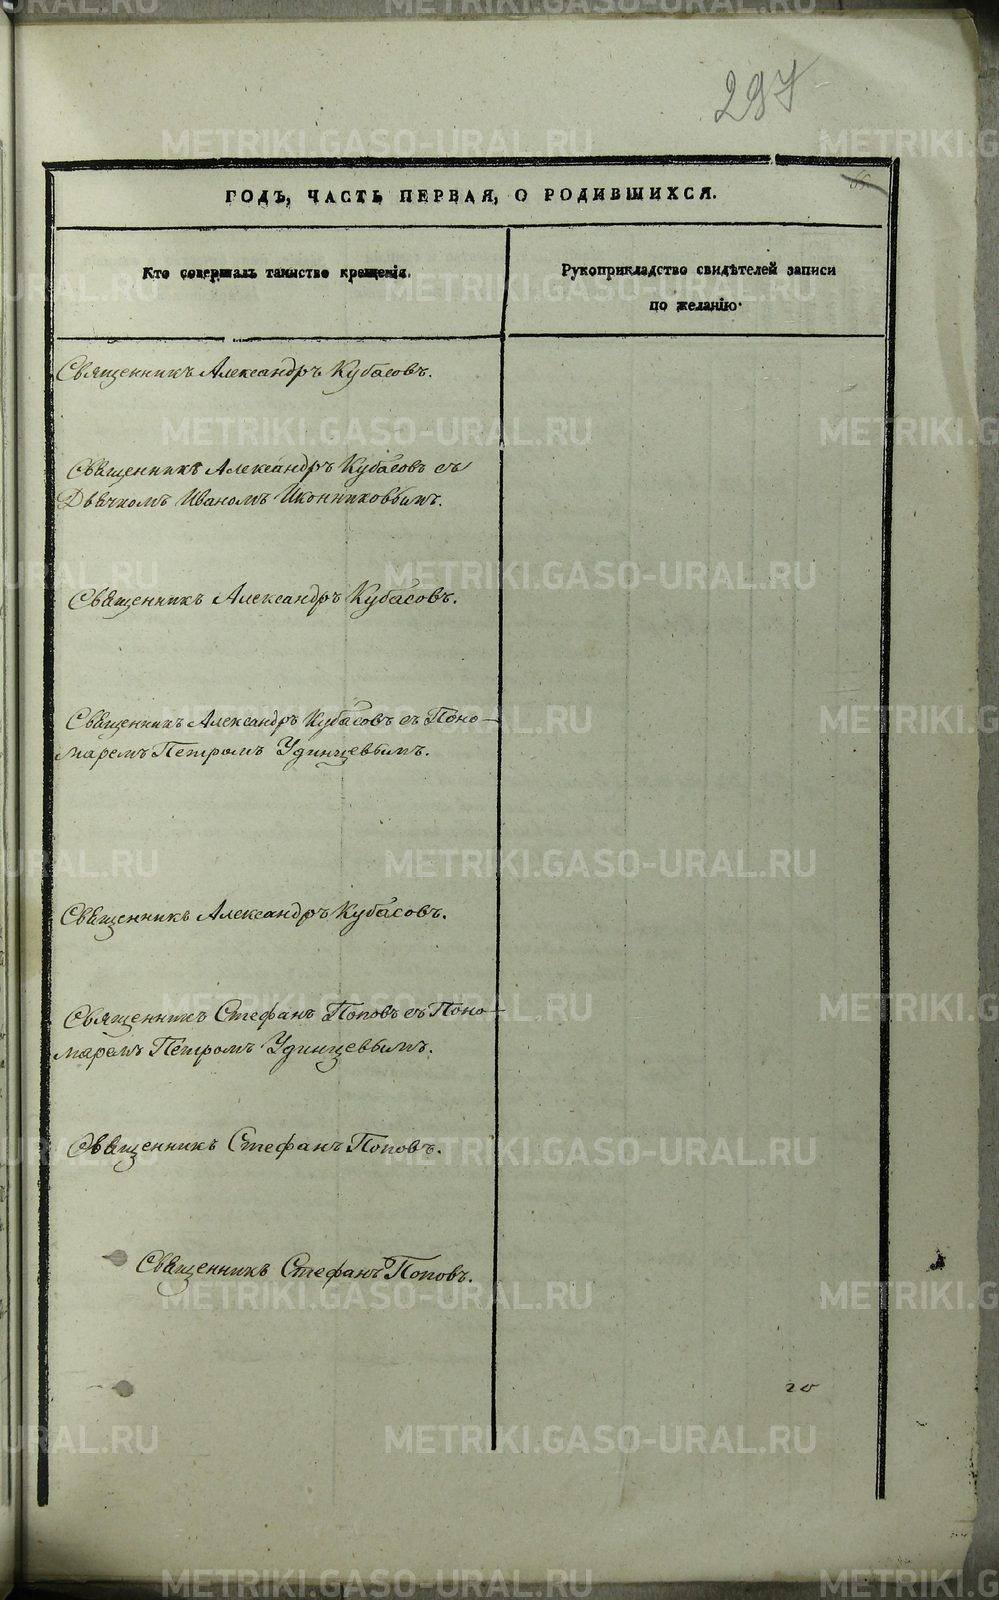 297
ГОДЪ, ЧАСТЬ ПЕРВАЯ, О РОДИВШИХСЯ.
Кто совершалъ таинство крещенія.
Рукоприкладство свидѣтелей записи
по желанію.
Священникъ Александръ Кубасовъ.
Священникъ Александръ Кубасовъ съ
Дьячкомъ Иваномъ Иконниковымъ.
Священникъ Александръ Кубасовъ.
Священникъ Александръ Кубасовъ съ Поно-
маремъ Петромъ Удинцевымъ.
Священникъ Александръ Кубасовъ.
Священникъ Стефанъ Поповъ съ Поно-
маремъ Петромъ Удинцевымъ.
Священникъ Стефанъ Поповъ.
Священникъ Стефанъ Поповъ.
METRIKI.GASO-URAL.RU